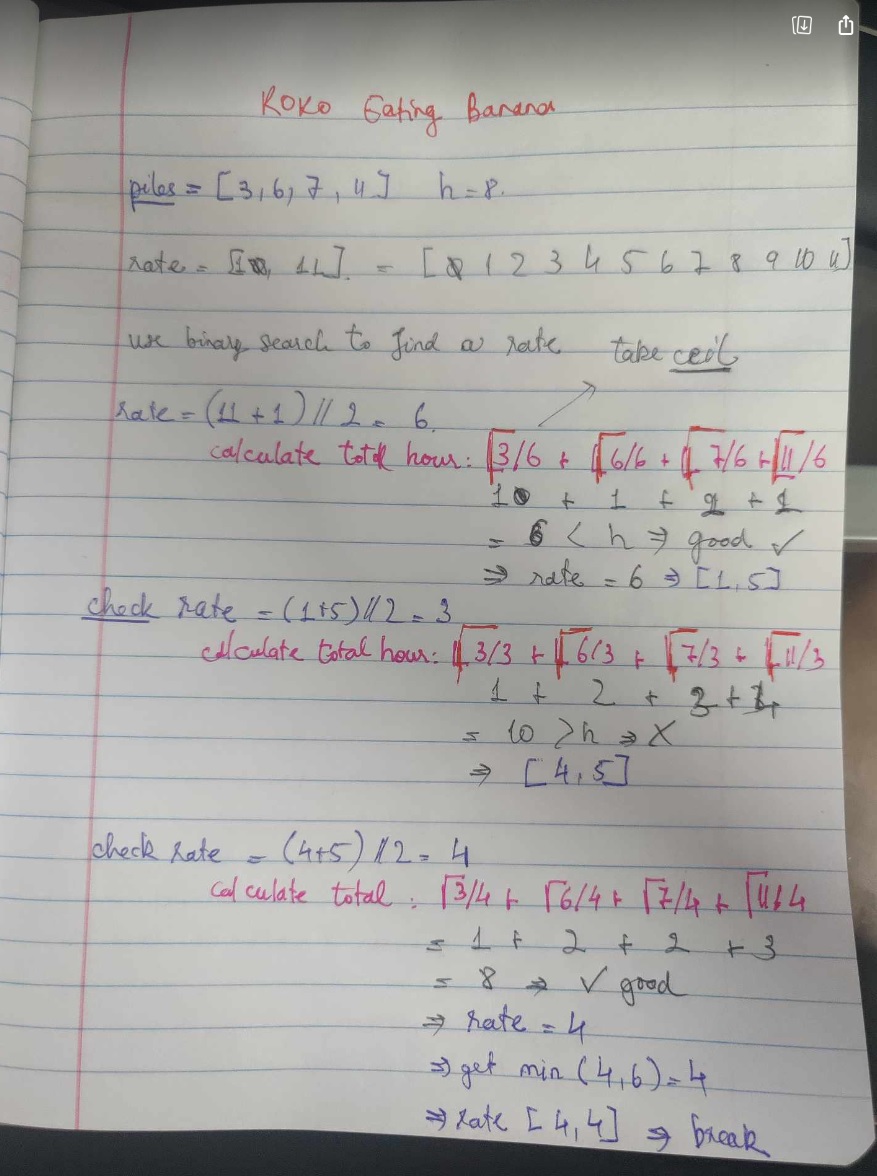 KOKO Eating Banana
piles = [3, 6, 7, 11] h = 8.
rate = [1, 11]. = [1 2 3 4 5 6 7 8 9 10 11]
use binary search to find a rate take ceil
rate = (11 + 1) // 2 = 6.
calculate total hour: ⌈3/6 + ⌈6/6 + ⌈7/6 + ⌈11/6
1 + 1 + 2 + 1
= 6 < h ⇒ good ✓
⇒ rate = 6 ⇒ [1, 5]
check rate = (1+5) // 2 = 3
calculate total hour: ⌈3/3 + ⌈6/3 + ⌈7/3 + ⌈11/3
1 + 2 + 3 + 4
= 10 > h ⇒ X
⇒ [4, 5]
check rate = (4+5) // 2 = 4
calculate total : ⌈3/4 + ⌈6/4 + ⌈7/4 + ⌈11/4
= 1 + 2 + 2 + 3
= 8 ⇒ ✓ good
⇒ rate = 4
⇒ get min (4, 6) = 4
⇒ rate [4, 4] ⇒ break